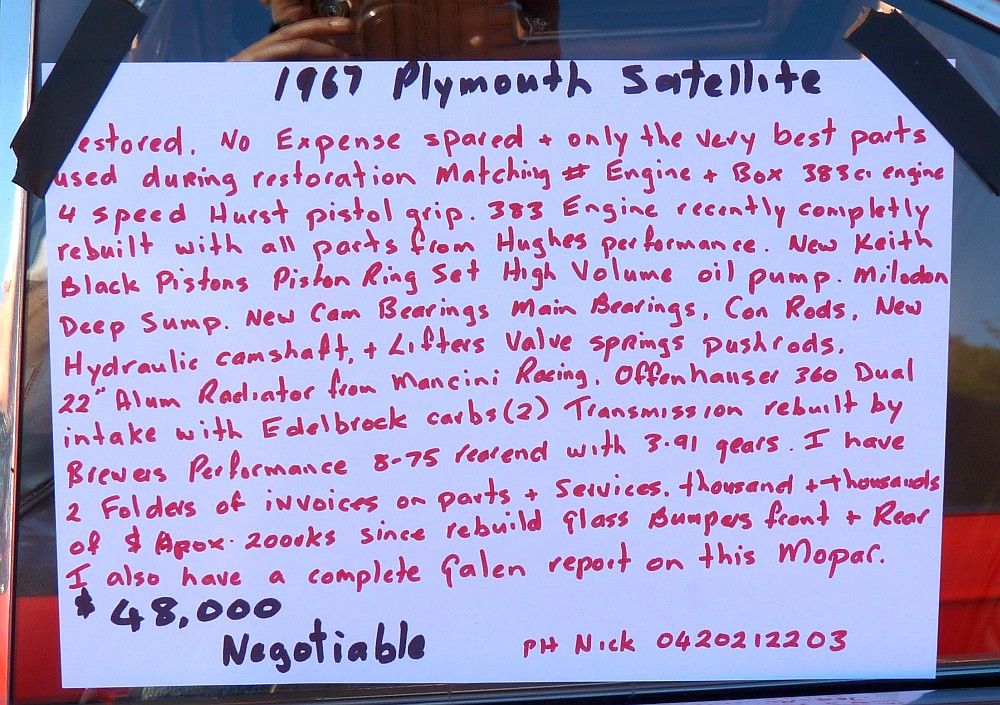 1967 Plymouth Satellite
estored. No Expense spared + only the very best parts
used during restoration Matching # Engine + Box 383ci engine
4 speed Hurst pistol grip. 383 Engine recently completly
rebuilt with all parts from Hughes performance. New Keith
Black Pistons Piston Ring Set High Volume oil pump. Milodon
Deep Sump. New Cam Bearings Main Bearings, Con Rods, New
Hydraulic camshaft, + Lifters Valve springs pushrods.
22" Alum Radiator from Mancini Racing. Offenhauser 360 Dual
intake with Edelbrock carbs(2) Transmission rebuilt by
Brewers Performance 8-75 rearend with 3.91 gears. I have
2 Folders of invoices on parts + Services. thousand + thousands
of $ Apox. 2000ks since rebuild Glass Bumpers front + Rear
I also have a complete Galen report on this Mopar.
$ 48,000
Negotiable PH Nick 0420212203